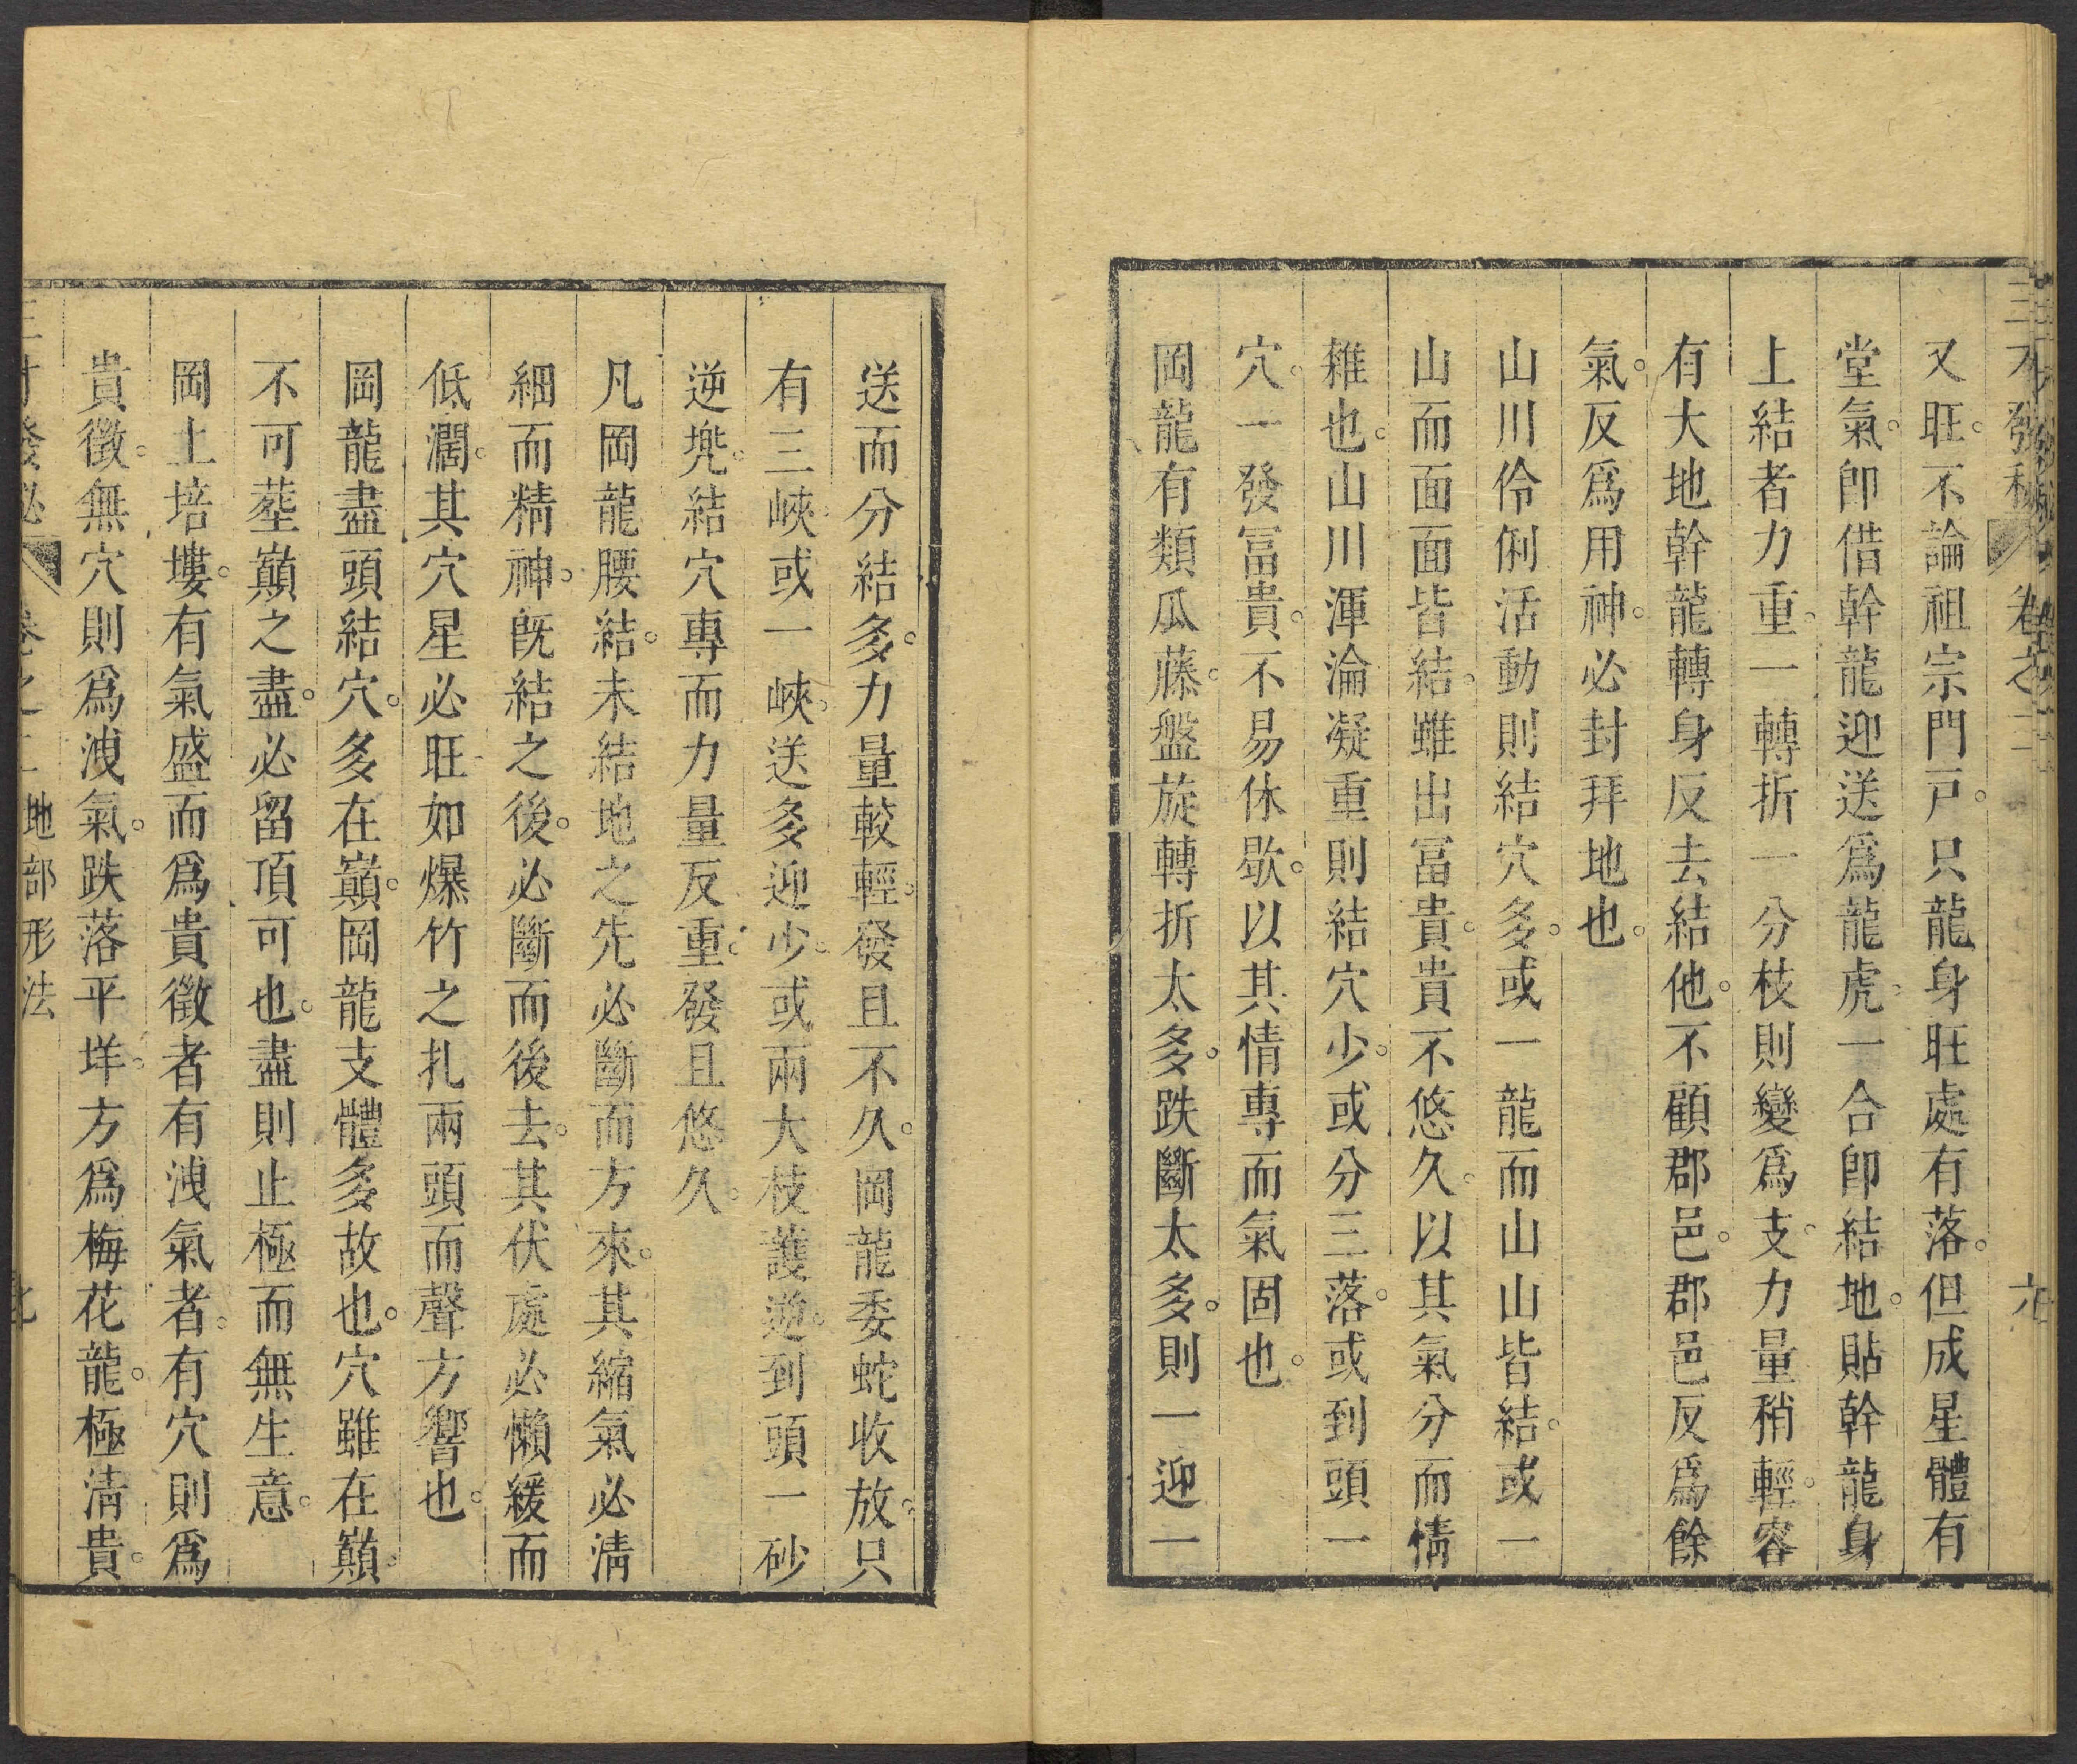 三才發秘 卷之二 六
又旺。不論祖宗門戸。只龍身旺處有落。但成星體有
堂氣。卽借幹龍迎送爲龍虎。一合卽結地。貼幹龍身
上結者力重。一轉折一分枝則變爲支。力量稍輕。容
有大地幹龍轉身反去結他。不顧郡邑。郡邑反爲餘
氣。反爲用神。必封拜地也。
山川伶俐活動則結穴多。或一龍而山山皆結。或一
山而面面皆結。雖出冨貴。貴不悠久。以其氣分而情
雜也。山川渾淪凝重則結穴少。或分三落。或到頭一
穴。一發冨貴。不易休歇。以其情專而氣固也。
岡龍有類瓜藤。盤旋轉折太多。跌斷太多。則一迎一
送而分結多。力量較輕。發且不久。岡龍委蛇收放。只
有三峽。或一峽。送多迎少。或兩大枝護遊。到頭一砂
逆兠。結穴專而力量反重。發且悠久。
凡岡龍腰結。未結地之先必斷而方來。其縮氣必淸
細而精神。旣結之後。必斷而後去。其伏處必懶緩而
低濶。其穴星必旺。如爆竹之扎兩頭而聲方響也。
岡龍盡頭結穴。多在巔。岡龍支體多故也。穴雖在巔。
不可塟巔之盡。必留頂可也。盡則止極而無生意。
岡土培塿。有氣盛而爲貴徵者。有洩氣者。有穴則爲
貴徵。無穴則爲洩氣。跌落平垟。方爲梅花龍。極淸貴。
卷之二 地部形法